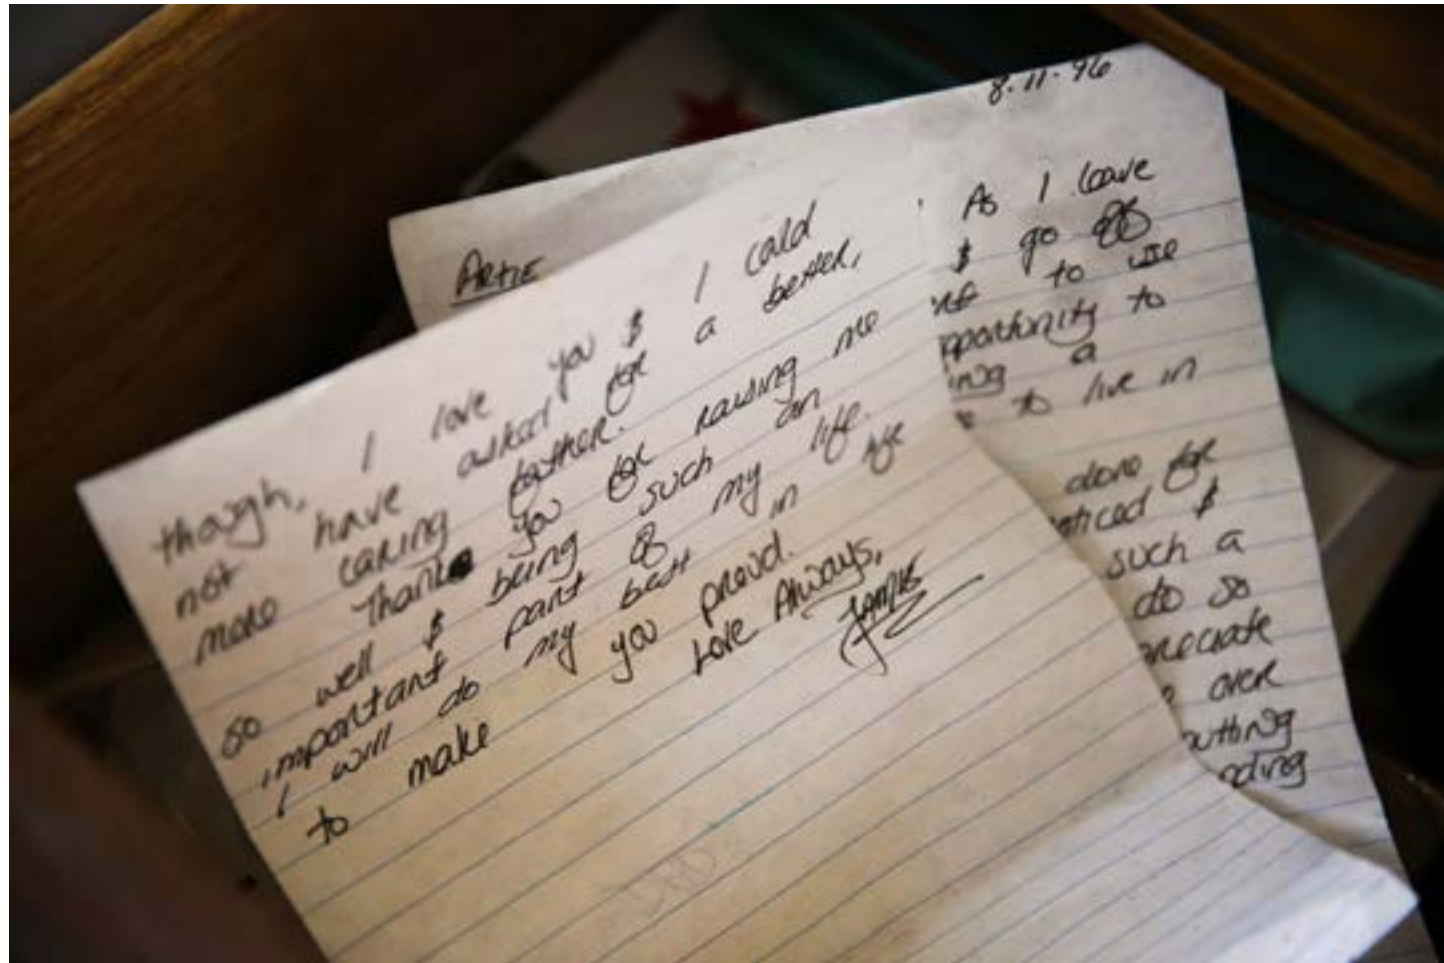 8·11·96
ARTIE
As I leave
$ go off
to use
pportunity to
ing a
to live in
done for
noticed $
such a
do so
preciate
over
utting
nding
though, I love you $ I cald
not have asked for a better,
more caring father.
Thank you for raising me
so well $ being such an
important part of my life.
I will do my best in life
to make you proud.
Love Always,
JAMES